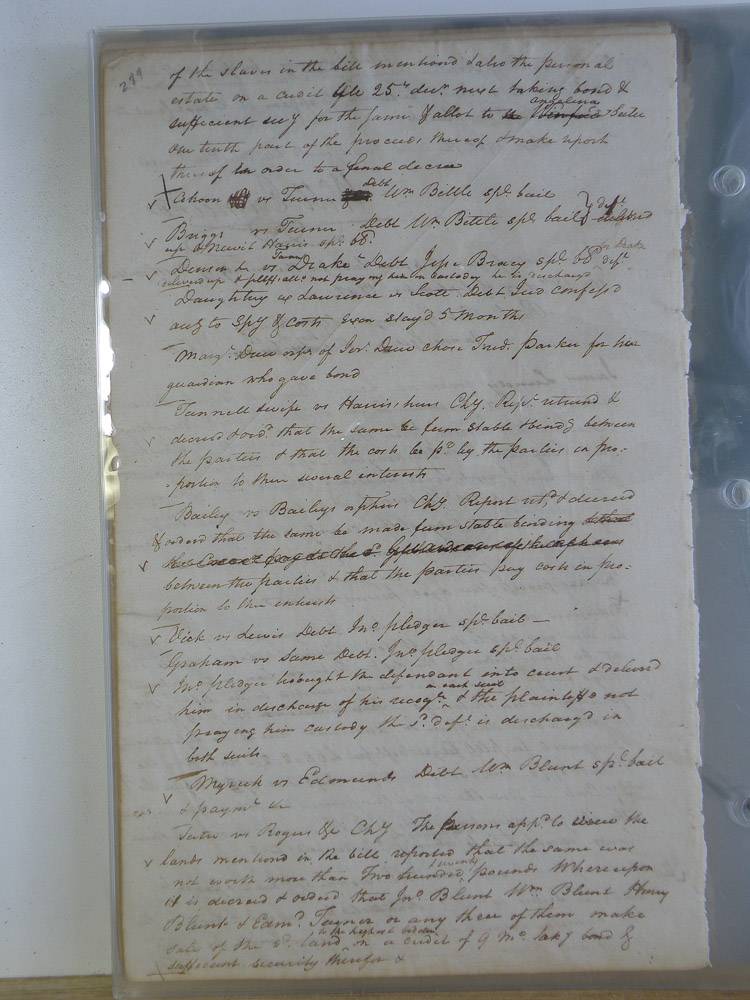 289
of the slaves in the bill mentiond & also the personal
estate on a credit till 25th decr next taking bond &
sufficient secy for the same & allot to Angelina
one tenth part of the proceeds thereof & make report
thereof in order to a final decree
Cahoon vs Turner Debt Wm Bittle spl bail
Briggs vs Turner Debt Wm Bittle spl bail
up & Newit Harris spl bl
Denson &c vs Drake Debt Jesse Bracy spl bl deft
deliverd up & plffs atto not praying him in Custody he is dischargd
Daughtery ex Lawrence vs Scott Debt Jud confess'd
accg to Spy & costs Exon stay'd 5 months
Margt Drew orpn of Jer. Drew chose Fred. Parker for her
guardian who gave bond
Tunnell & wife vs Harris heirs Chy. Rept returnd &
decreed & ord that the same be firm stable & bindg between
the parties & that the costs be pd by the parties in pro-
-portion to their several interests
Bailey vs Baileys orphans Chy. Report retd & decreed
& orderd that the same be made firm stable binding
between the parties & that the parties pay costs in pro-
portion to their interests
Vick vs Lewis Debt Jno pledger spl bail
Graham vs Same Debt. Jno pledger spl bail
Jno pledger brought the defendant into court & deliverd
him in discharge of his recogce in each suit & the plaintiffs not
praying him custody the sd deft is discharg'd in
both suits
Myrick vs Edmunds Debt Wm Blunt spl bail
& paymt &c
vs Rogers &c Chy The persons appd to view the
lands mentiond in the bill reported that the same was
not worth more than Two hundred & seventy pounds Whereupon
it is decreed & orderd that Jno Blunt Wm Blunt Henry
Blunt & Edmd Turner or any three of them make
sale of the sd land to the highest bidder on a credit of 9 mo takg bond &
sufficient security therefor &